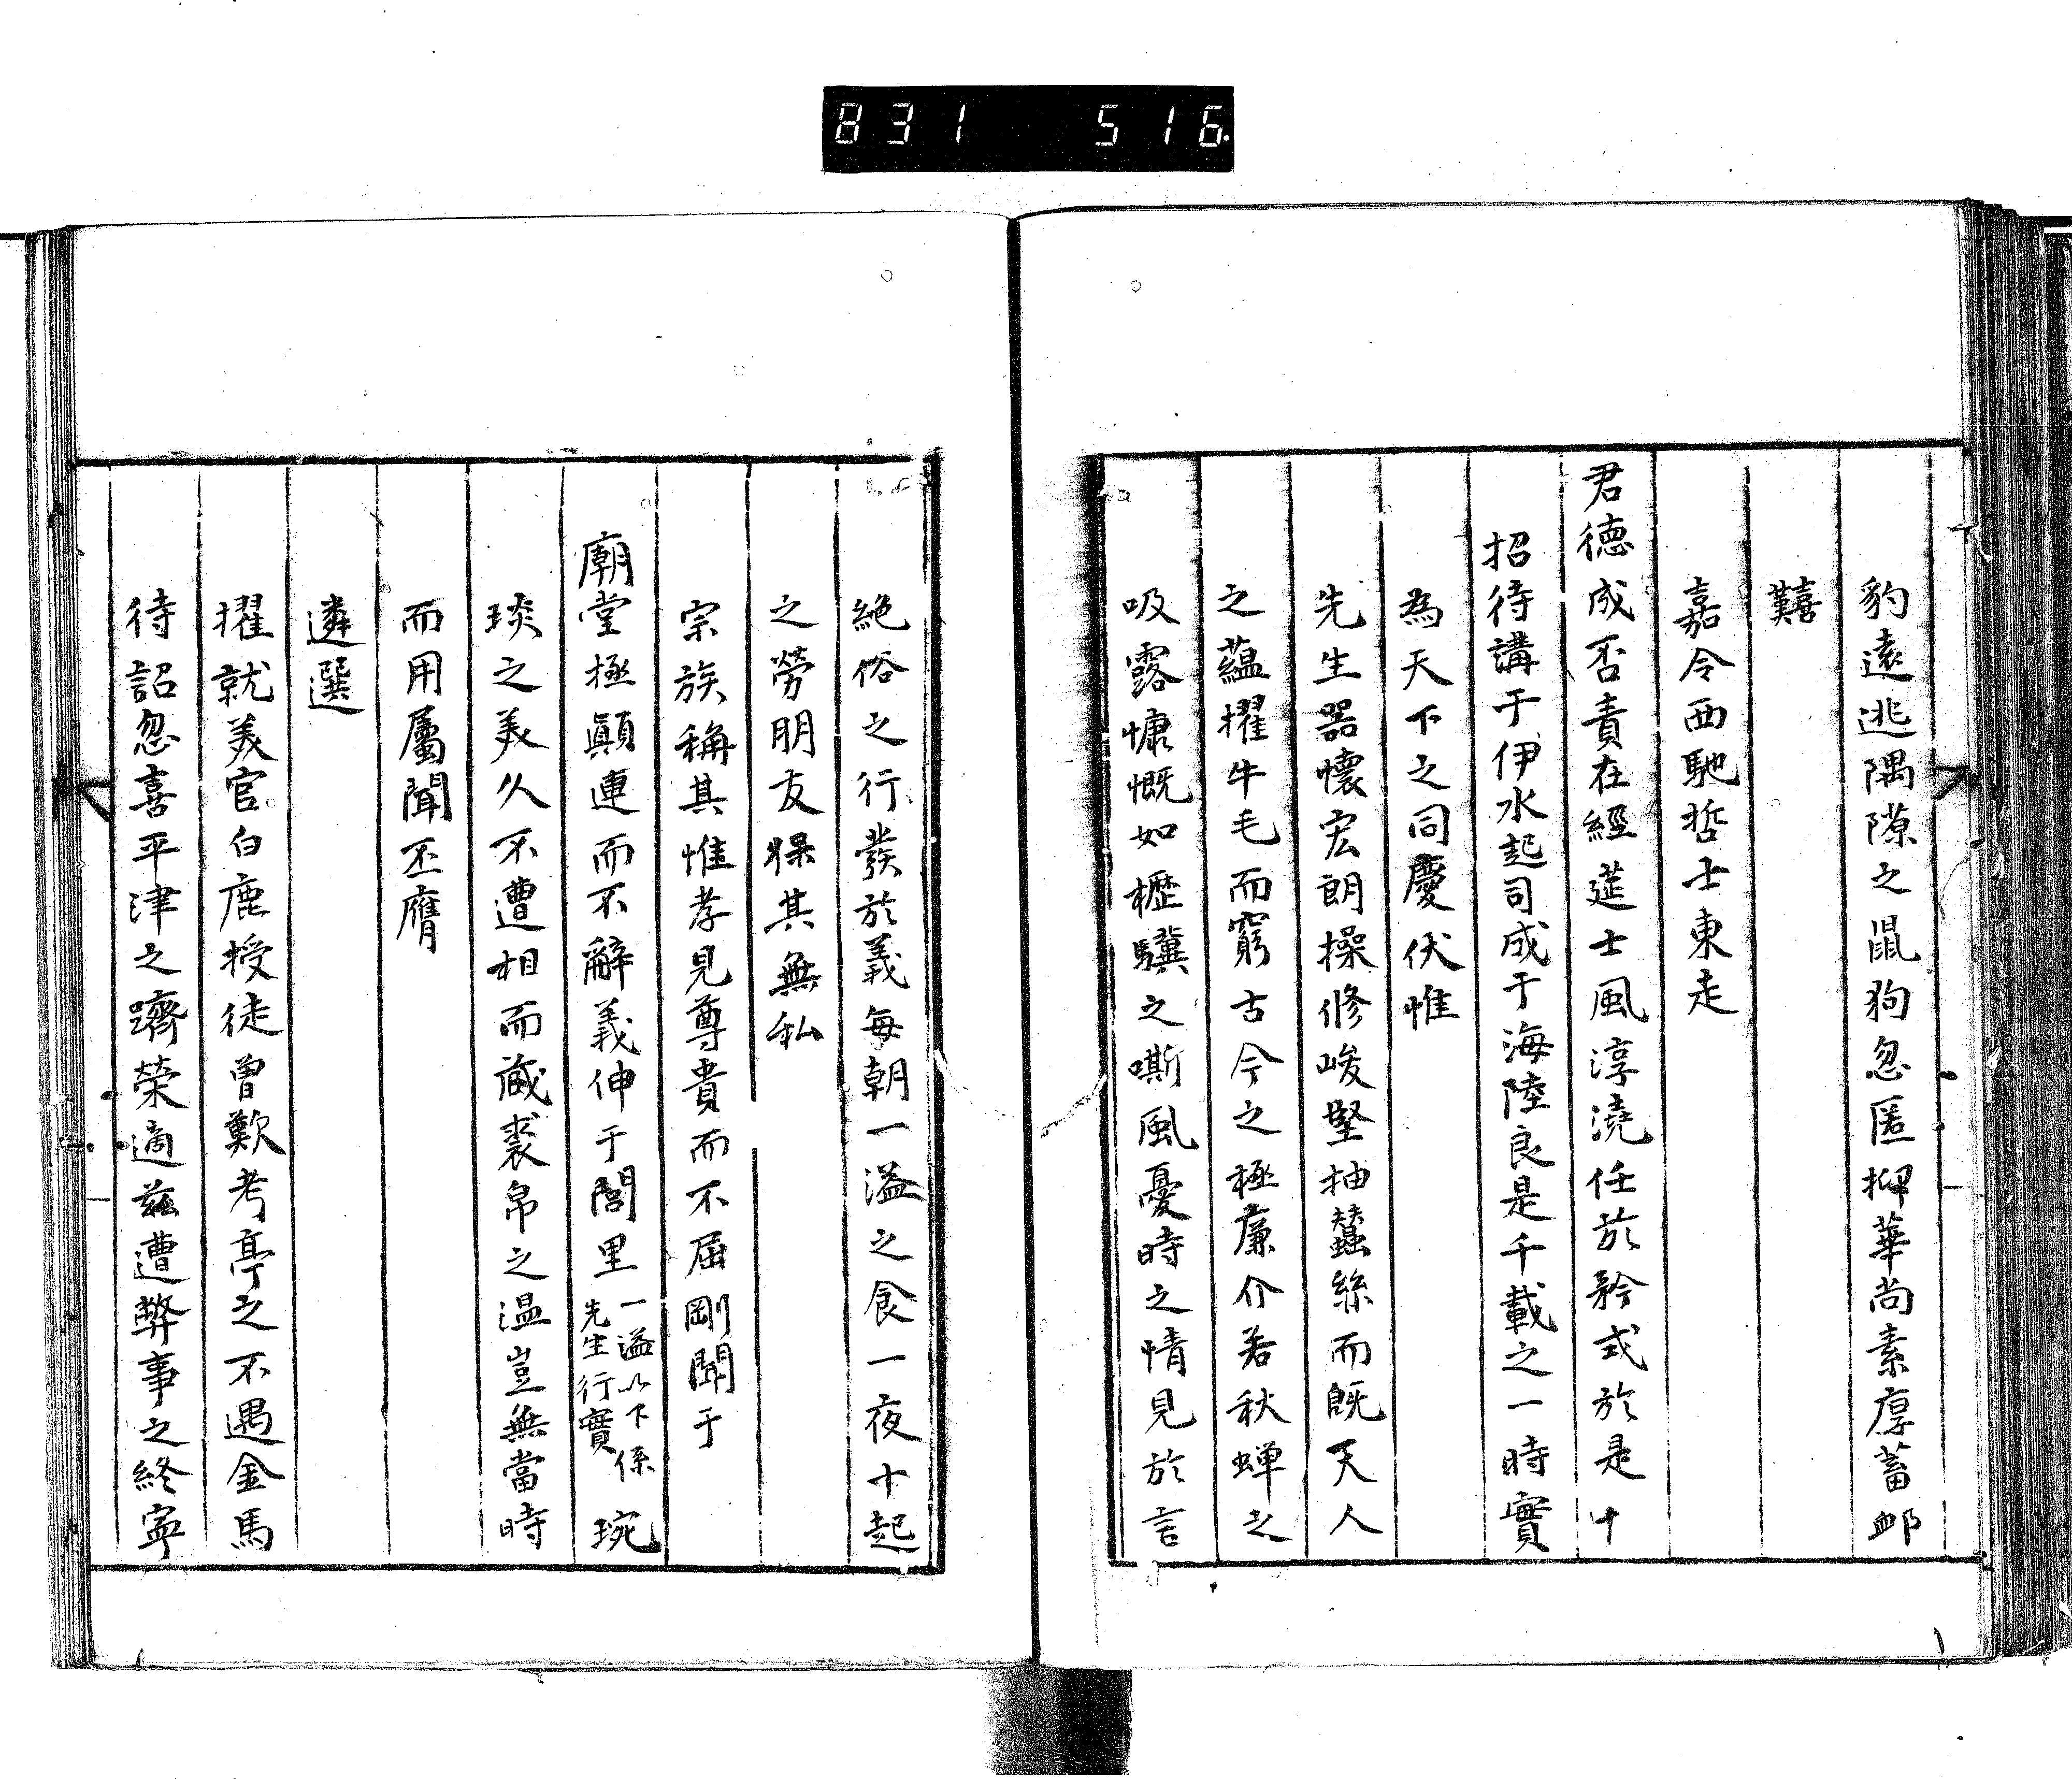 831 516
豹遠逃隅隙之鼠狗忽匿抑華尚素厚蓄卹
囏
嘉令西馳哲士東走
君德成否責在經莚士風淳澆任於矜式於是十
招待講于伊水起司成于海陸良是千載之一時實
為天下之同慶伏惟
先生器懷宏朗操修峻堅抽蠶絲而旣天人
之蘊擢牛毛而窮古今之極廉介若秋蟬之
吸露慷慨如櫪驥之嘶風憂時之情見於言
絶俗之行發於義每朝一溢之食一夜十起
之勞朋友保其無私
宗族稱其惟孝見尊貴而不屈剛聞于
廟堂極顚連而不辭義伸于閭里一溢以下係先生行實琬
琰之美久不遭相而蔵裘帛之温豈無當時
而用屬聞丕膺
遴選
擢就美官白鹿授徒曾歎考亭之不遇金馬
待詔忽喜平津之躋榮適玆遭弊事之終寧